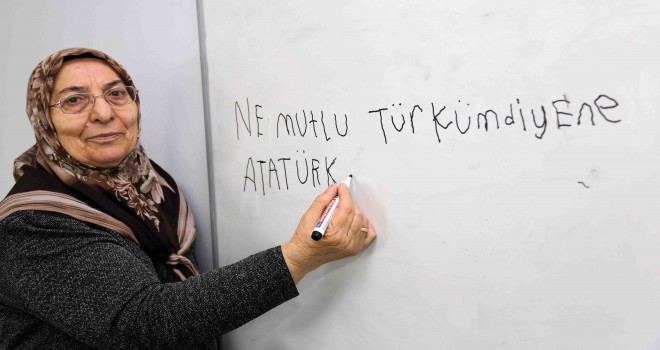 NE mUTLU TÜrKümdiyEne
ATATÜRK